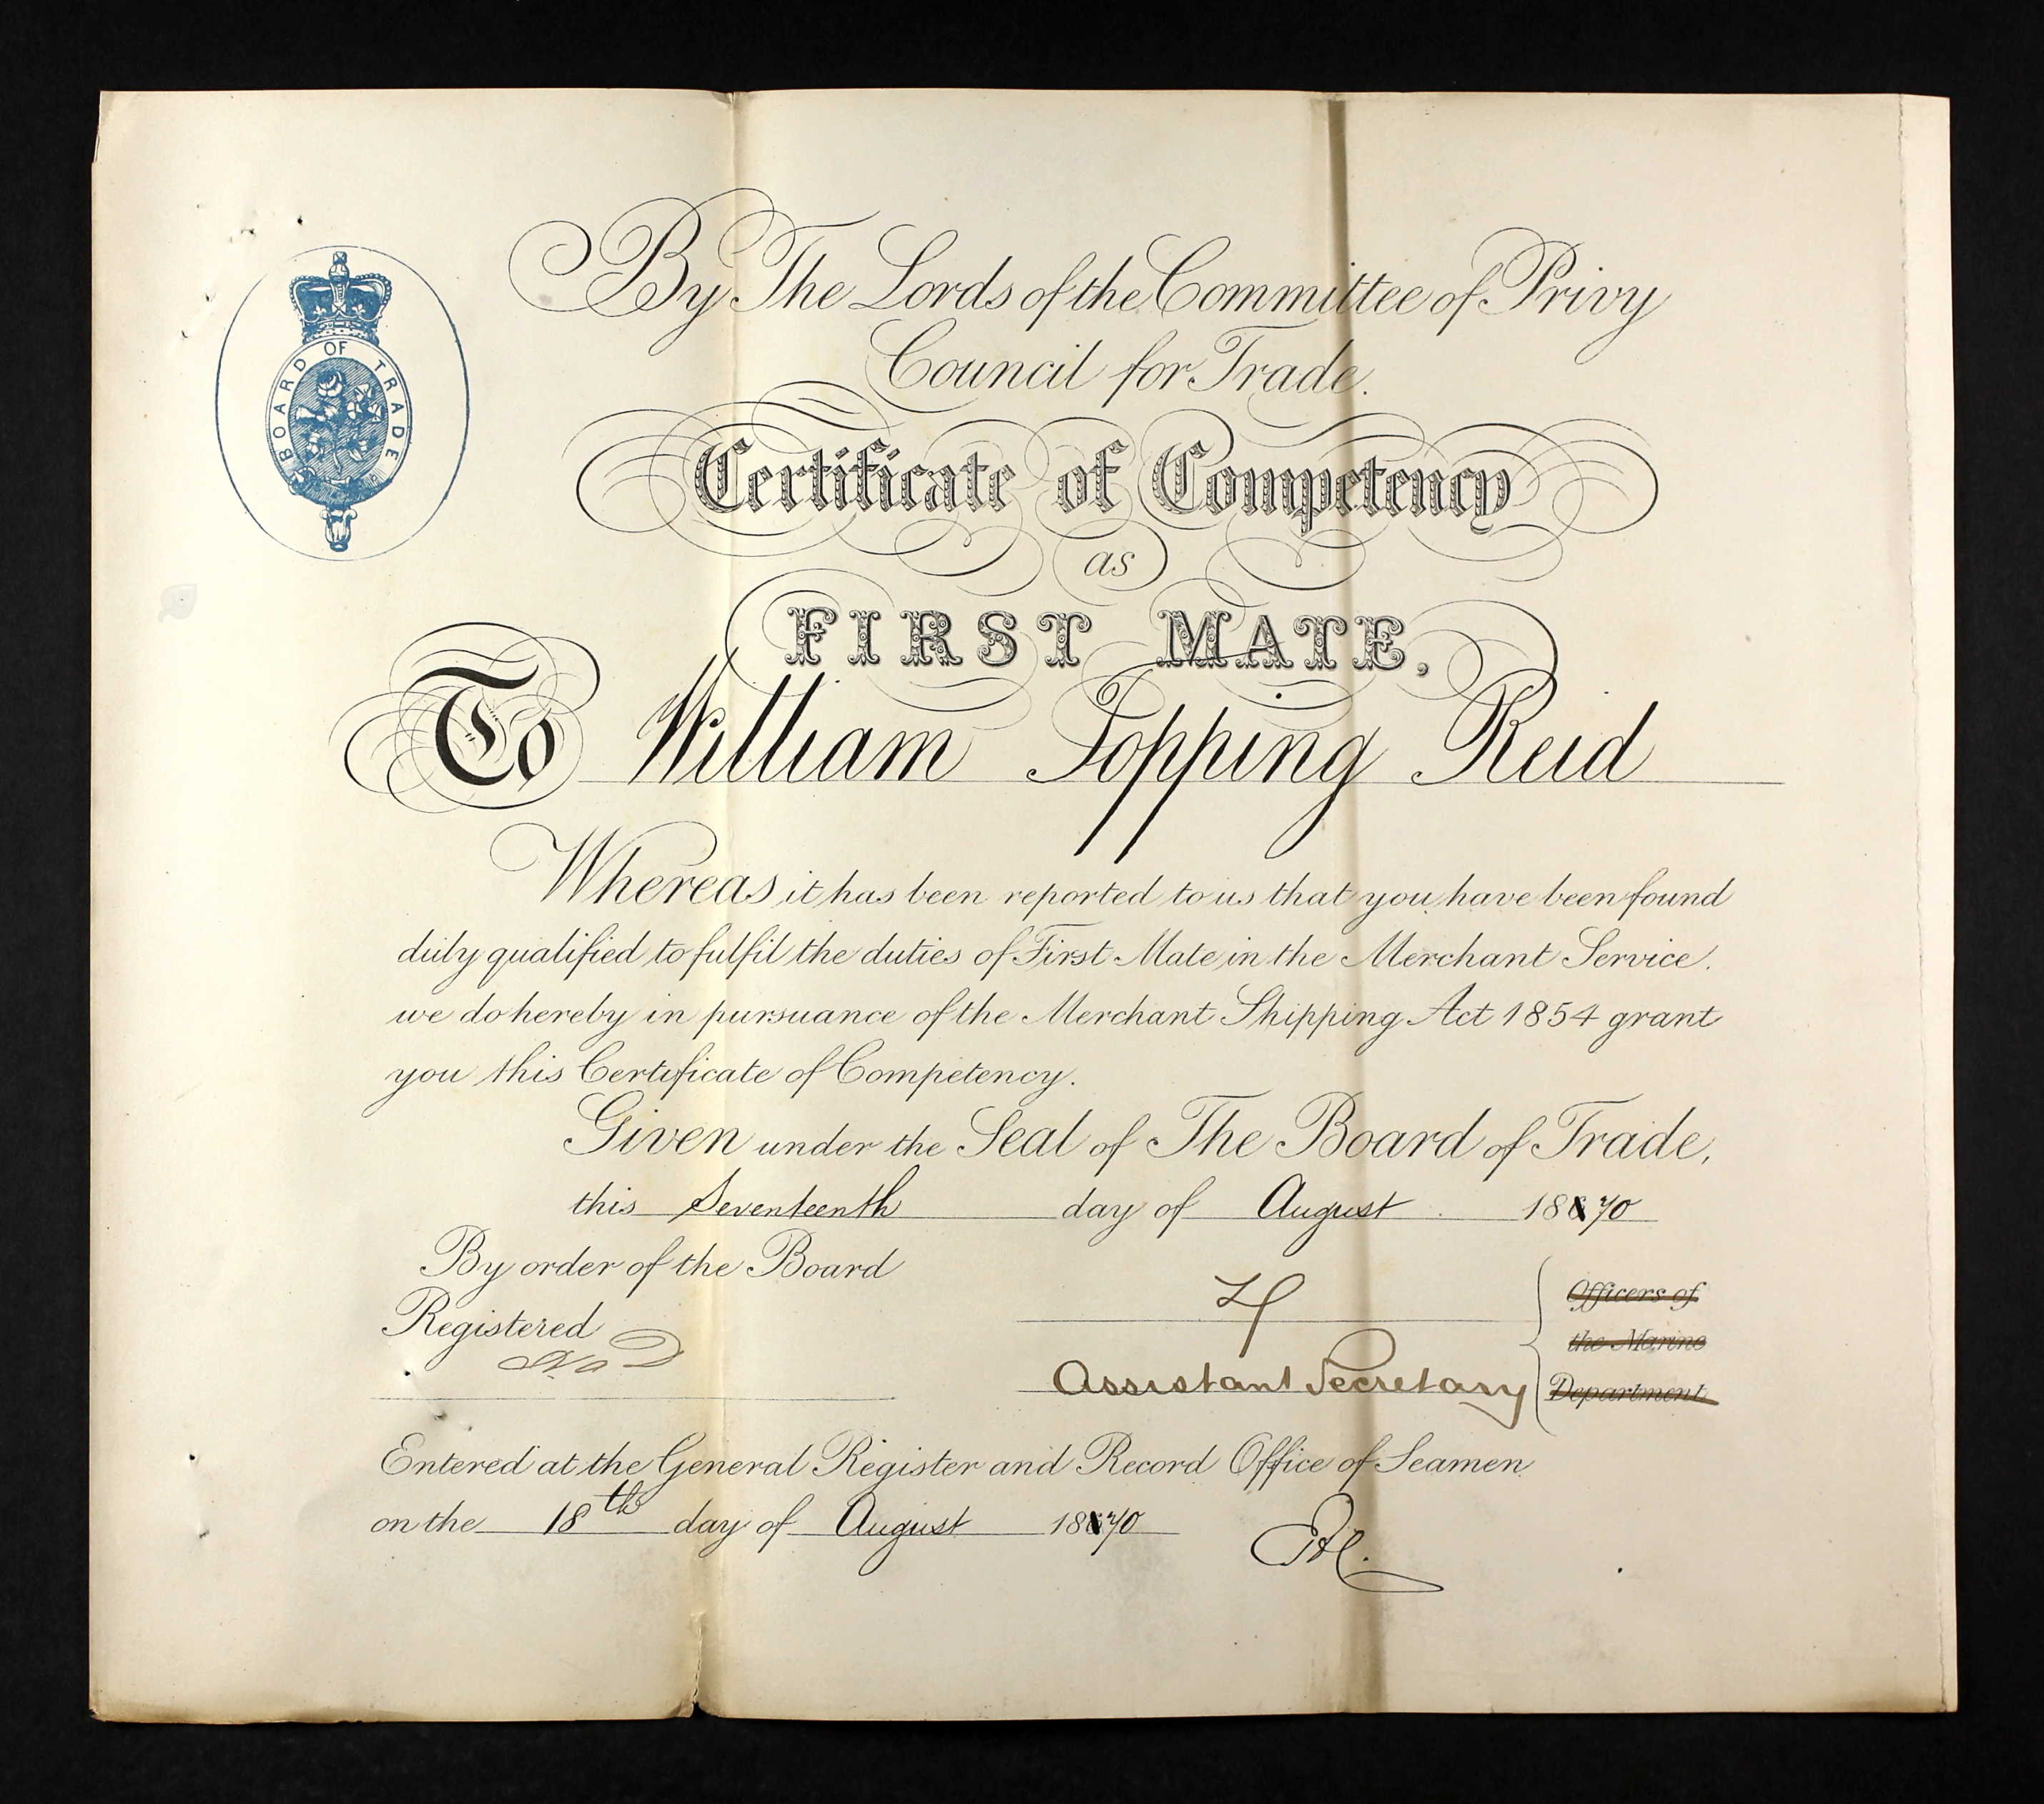 BOARD OF TRADE
By The Lords of the Committee of Privy
Council for Trade.
Certificate of Competency
as
FIRST MATE,
To William Topping Reid
Whereas it has been reported to us that you have been found
duly qualified to fulfil the duties of First Mate in the Merchant Service.
we do hereby in pursuance of the Merchant Shipping Act 1854 grant
you this Certificate of Competency.
Given under the Seal of The Board of Trade,
this Seventeenth day of August 1870
By order of the Board
Officers of
Registered
the Marine
Assistant Secretary Department
Entered at the General Register and Record Office of Seamen
on the 18th day of August 1870